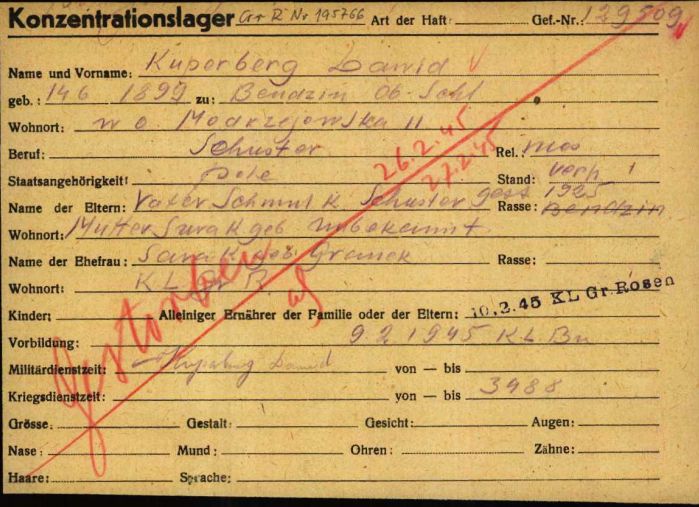 Konzentrationslager Gr R Nr 195766 Art der Haft: Gef.-Nr.: 129509
Name und Vorname: Kuperberg Dawid
geb.: 14 6 1899 zu: Bendzin Ob-Schl
Wohnort: w o Modrzejowska 11
Beruf: Schuster Rel.: mos
Staatsangehörigkeit: Pole Stand: verh 1
26.2.45
27.2.45
Name der Eltern: Vater Schmul K. Schuster gest 1925 Rasse: Bendzin
Wohnort: Mutter Sura K geb unbekannt
Name der Ehefrau: Sara K geb. Rasse:
Wohnort: K L Gr R
Kinder: Alleiniger Ernährer der Familie oder der Eltern: 10.2.45 KL Gr. Rosen
Vorbildung: 9.2 1945 KL Bu
Militärdienstzeit: Dawid von — bis
Kriegsdienstzeit: von — bis 3488
Grösse: Gestalt: Gesicht: Augen:
Nase: Mund: Ohren: Zähne:
Haare: Sprache:
Gestorben